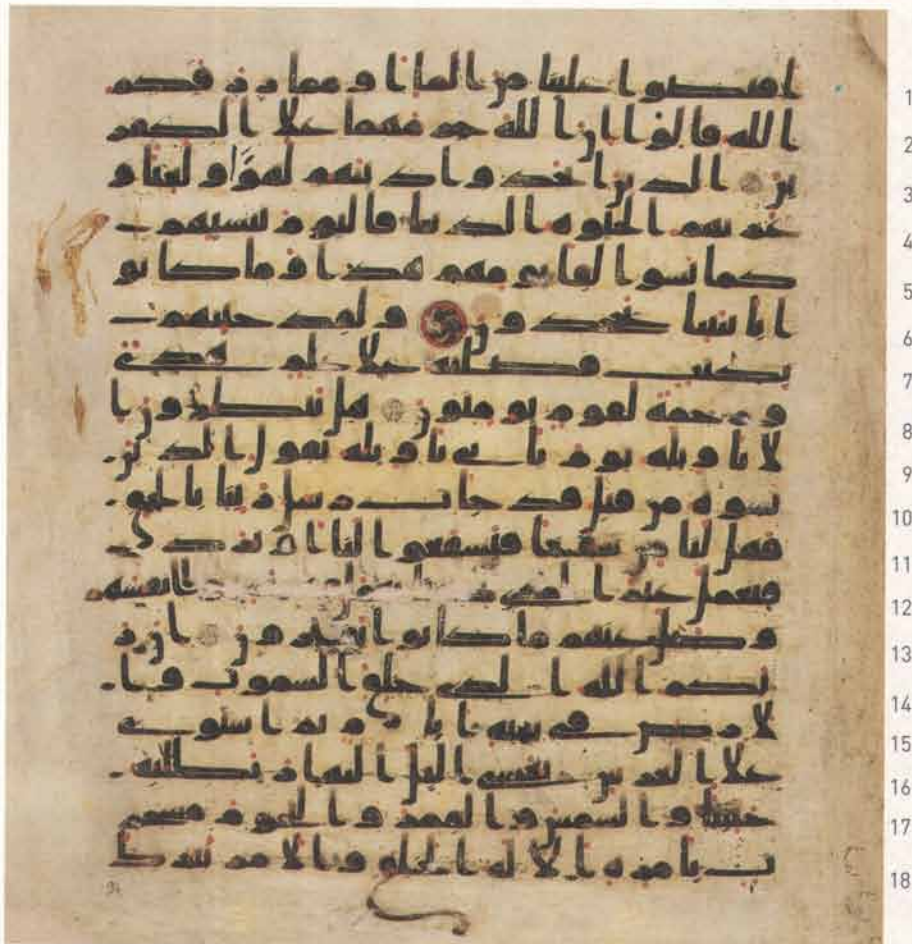 1 افيضوا علينا من الما او مما رزقكم
2 الله قالوا ان الله حرمهما علا الكفر
3 ين الذين اتخذوا دينهم لهوا ولعبا و
4 غرتهم الحيوه الدنيا فاليوم ننسيهم
5 كما نسوا لقا يومهم هذا وما كانو
6 ا بايتنا يجحدون ولقد جينهم
7 بكتب فصلنه علا علم هدى
8 ورحمة لقوم يومنون هل ينظرون ا
9 لا تاويله يوم ياتي تاويله يقول الذين
10 نسوه من قبل قد جات رسل ربنا بالحق
11 فهل لنا من شفعا فيشفعوا لنا او نرد
12 فنعمل غير الذي انفسهم
13 وضل عنهم ما كانوا يفترون ان ر
14 بكم الله الذي خلق السموت وا
15 لارض في ستة ايام ثم استوى
16 علا العرش يغشي اليل النهار يطلبه
17 حثيثا والشمس والقمر والنجوم مسخر
18 ت بامره الا له الخلق والامر تبرك